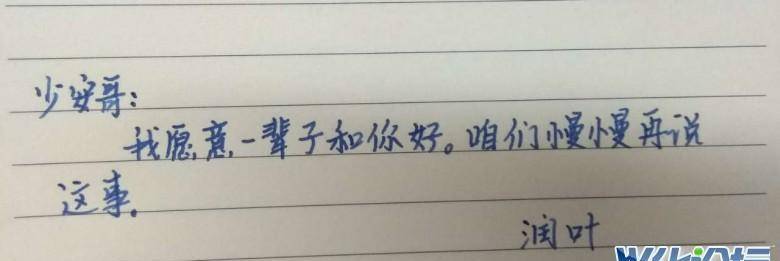 少安哥:
我愿意一辈子和你好。咱们慢慢再说
这事。
润叶